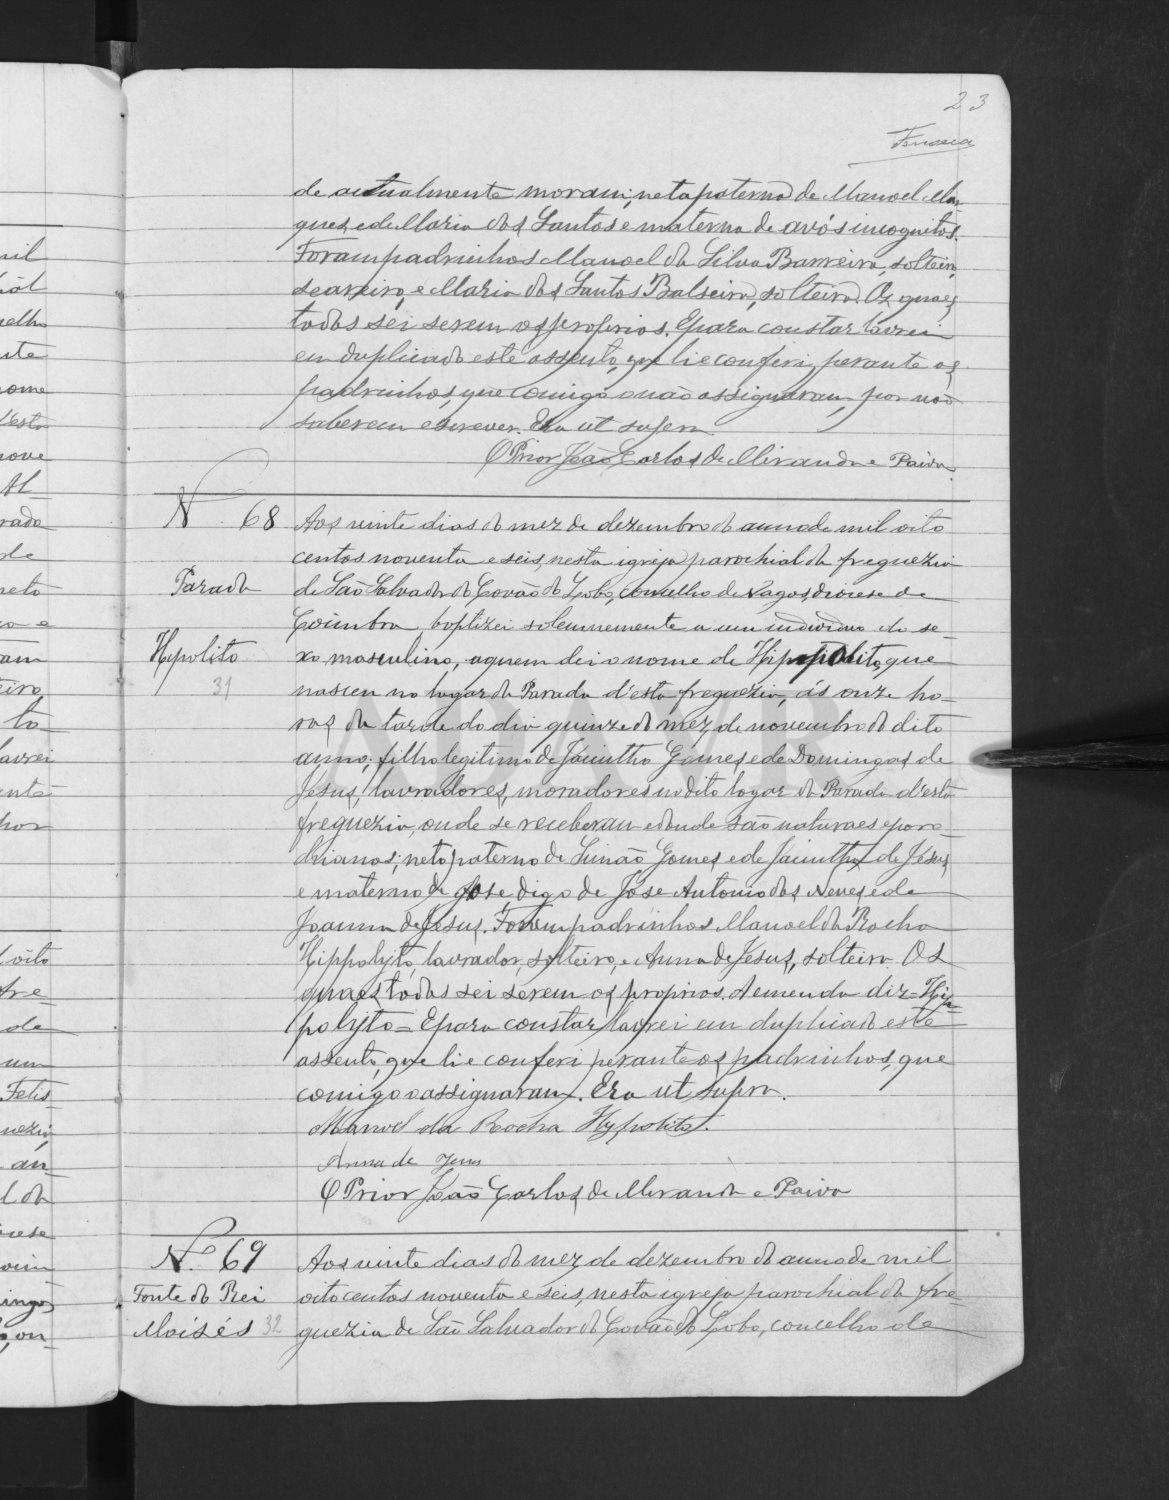 23
Fonseca
de actualmente moram; neta paterna de Manoel Mar-
ques, e de Maria dos Santos e materna de avós incognitos.
Foram padrinhos Manoel da Silva Barreiro, solteiro,
seareiro, e Maria dos Santos Balseira, solteira. Os quaes
todos sei serem os proprios. E para constar lavrei
em duplicado este assento, que li e conferi perante os
padrinhos, que comigo o não assignaram, por não
saberem escrever. Era ut supra.
O Prior João Carlos de Miranda e Paiva.
N. 68
Parada
Hipolito
31
Aos vinte dias do mez de dezembro do anno de mil oito
centos noventa e seis, nesta igreja parochial da freguezia
de São Salvador do Covão do Lobo, concelho de Vagos, diocese de
Coimbra, baptizei solemnemente a um individuo do se-
xo masculino, a quem dei o nome de Hippolito, que
nasceu no logar da Parada d'esta freguezia, ás onze ho-
ras da tarde do dia quinze do mez de novembro do dito
anno; filho legitimo de Jacintho Gomes, e de Domingas de
Jesus, lavradores, moradores no dito logar da Parada d'esta
freguezia, onde se receberam e donde são naturaes e paro-
chianos; neto paterno de Simão Gomes, e de Jacintha de Jesus,
e materno de Jose, digo de Jose Antonio das Neves, e de
Joanna de Jesus. Foram padrinhos Manoel da Rocha
Hippolyto, lavrador, solteiro, e Anna de Jesus, solteira. Os
quaes todos sei serem os proprios. A emenda diz = Hip-
polyto = E para constar lavrei em duplicado este
assento, que li e conferi perante os padrinhos, que
comigo o assignaram. Era ut supra.
Manoel da Rocha Hypolito.
Anna de Jesus
O Prior João Carlos de Miranda e Paiva
N.º 69
Fonte do Rei
Moisés 32
Aos vinte dias do mez de dezembro do anno de mil
oito centos noventa e seis, nesta igreja parochial da fre-
guezia de São Salvador do Covão do Lobo, concelho de